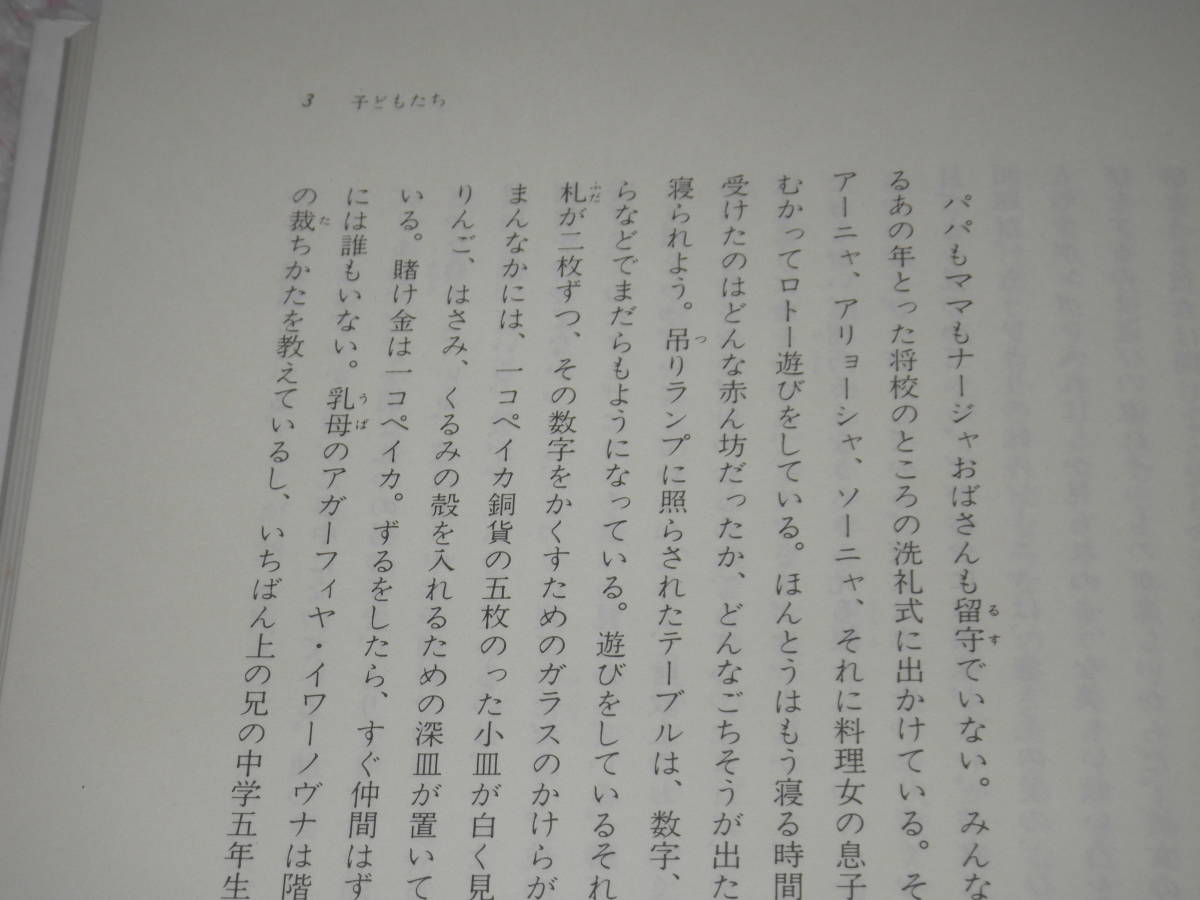 3 子どもたち
パパもママもナージャおばさんも留守でいない。みんな
るあの年とった将校のところの洗礼式に出かけている。そ
アーニャ、アリョーシャ、ソーニャ、それに料理女の息子
むかってロトー遊びをしている。ほんとうはもう寝る時間
受けたのはどんな赤ん坊だったか、どんなごちそうが出た
寝られよう。吊りランプに照らされたテーブルは、数字、
らなどでまだらもようになっている。遊びをしているそれ
札が二枚ずつ、その数字をかくすためのガラスのかけらが
まんなかには、一コペイカ銅貨の五枚のった小皿が白く見
りんご、はさみ、くるみの殻を入れるための深皿が置いて
いる。賭け金は一コペイカ。ずるをしたら、すぐ仲間はず
には誰もいない。乳母のアガーフィヤ・イワーノヴナは階
の裁ちかたを教えているし、いちばん上の兄の中学五年生